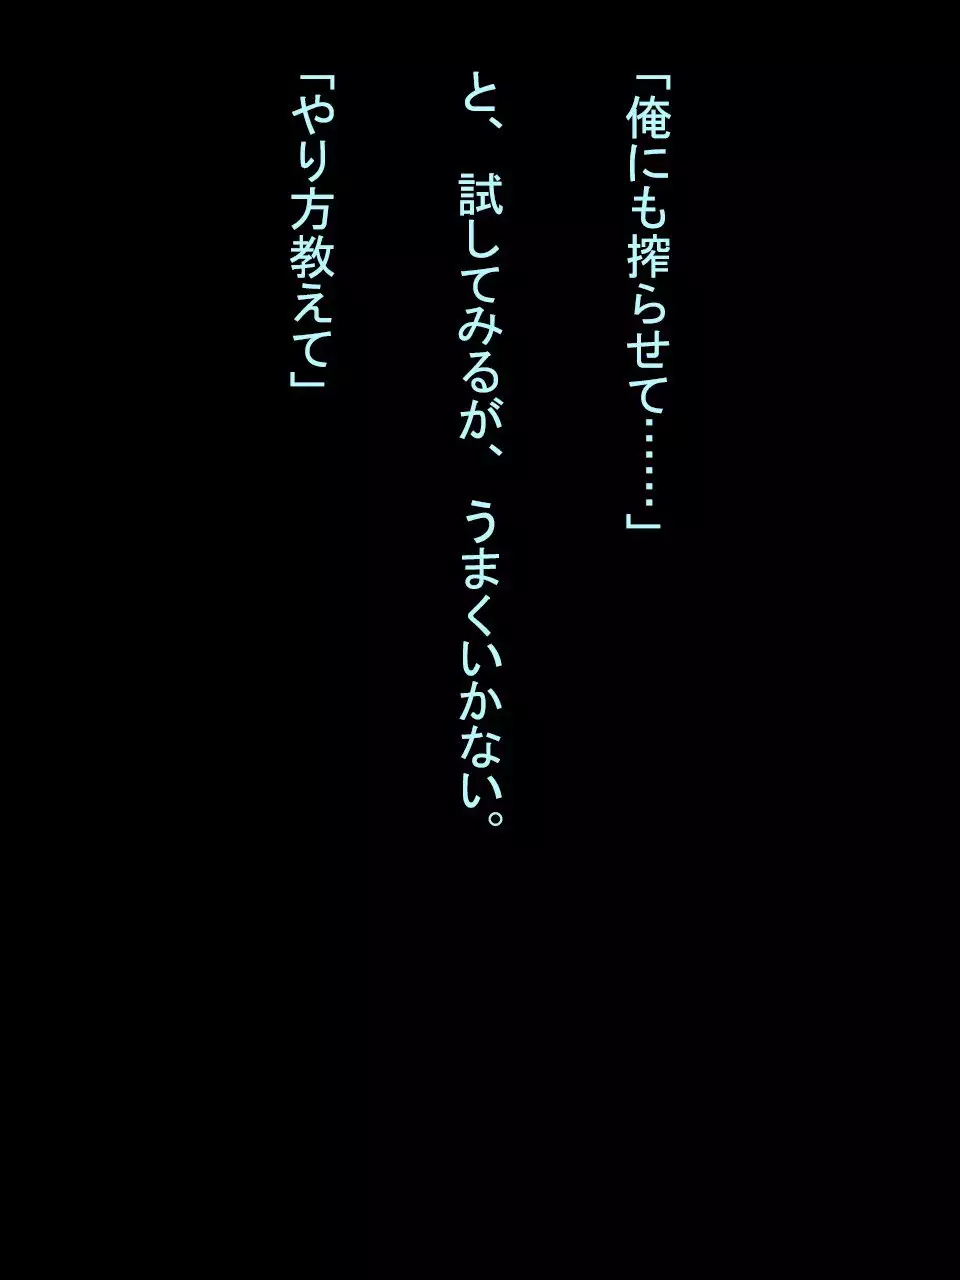 「俺にも搾らせて……」
と、試してみるが、うまくいかない。
「やり方教えて」